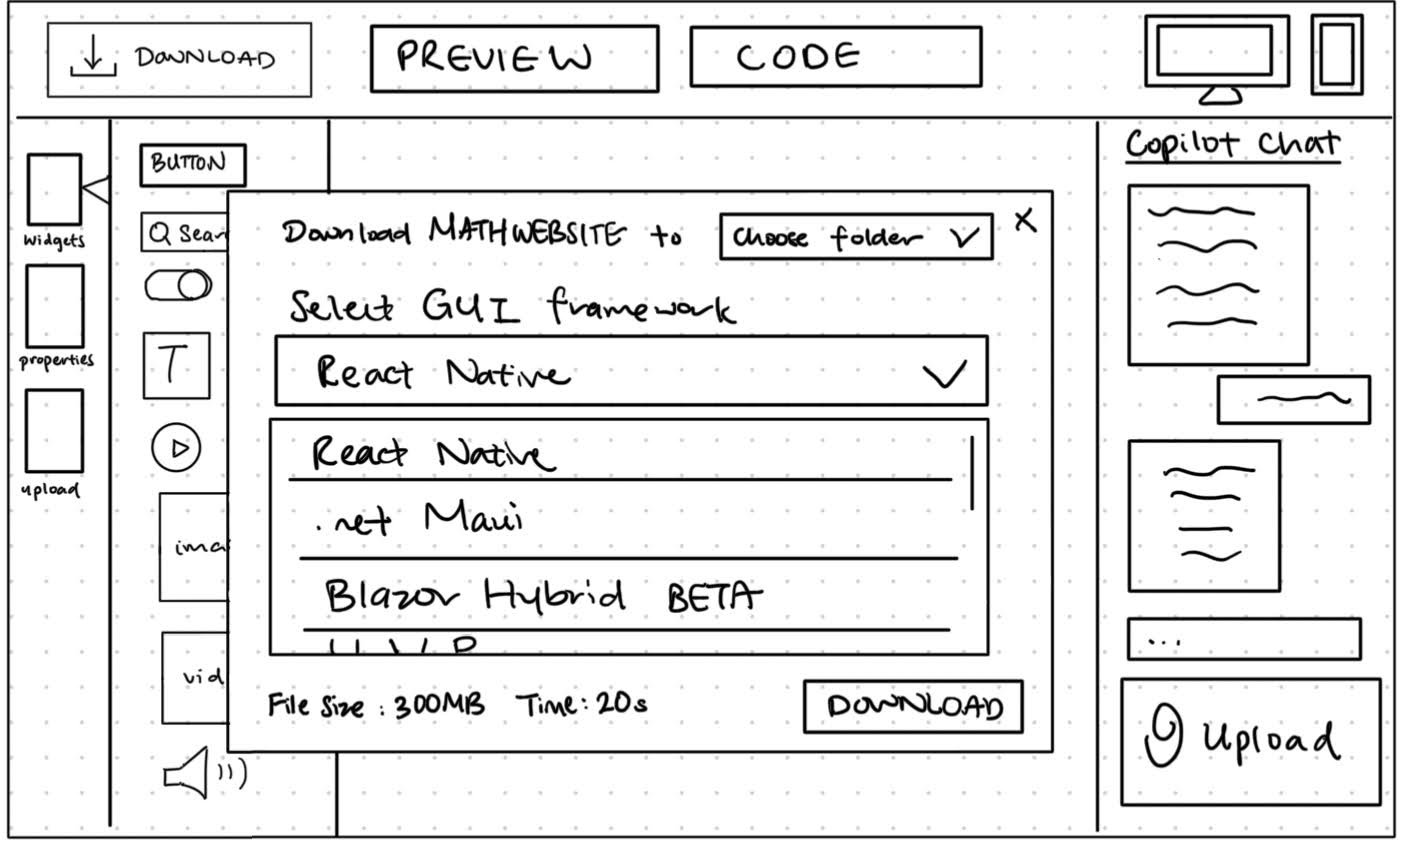 DOWNLOAD
PREVIEW
CODE
widgets
properties
upload
BUTTON
Sear
T
ima
vid
Download MATHWEBSITE to
Choose folder
X
Select GUI framework
React Native
React Native
.net Maui
Blazor Hybrid BETA
File Size : 300MB Time: 20s
DOWNLOAD
Copilot Chat
...
Upload